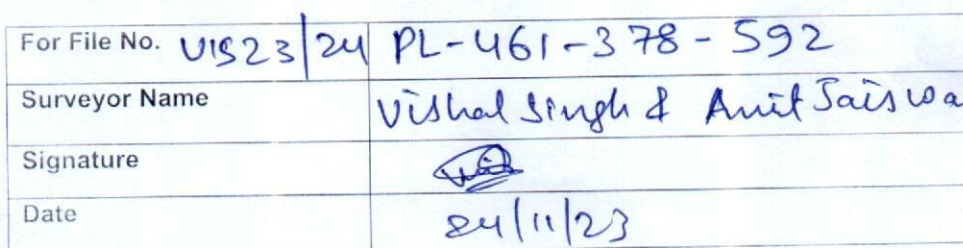 For File No. VIS23/24 PL-461-378-592
Surveyor Name Vishal Singh & Amit Jaiswa
Signature
Date 24/11/23